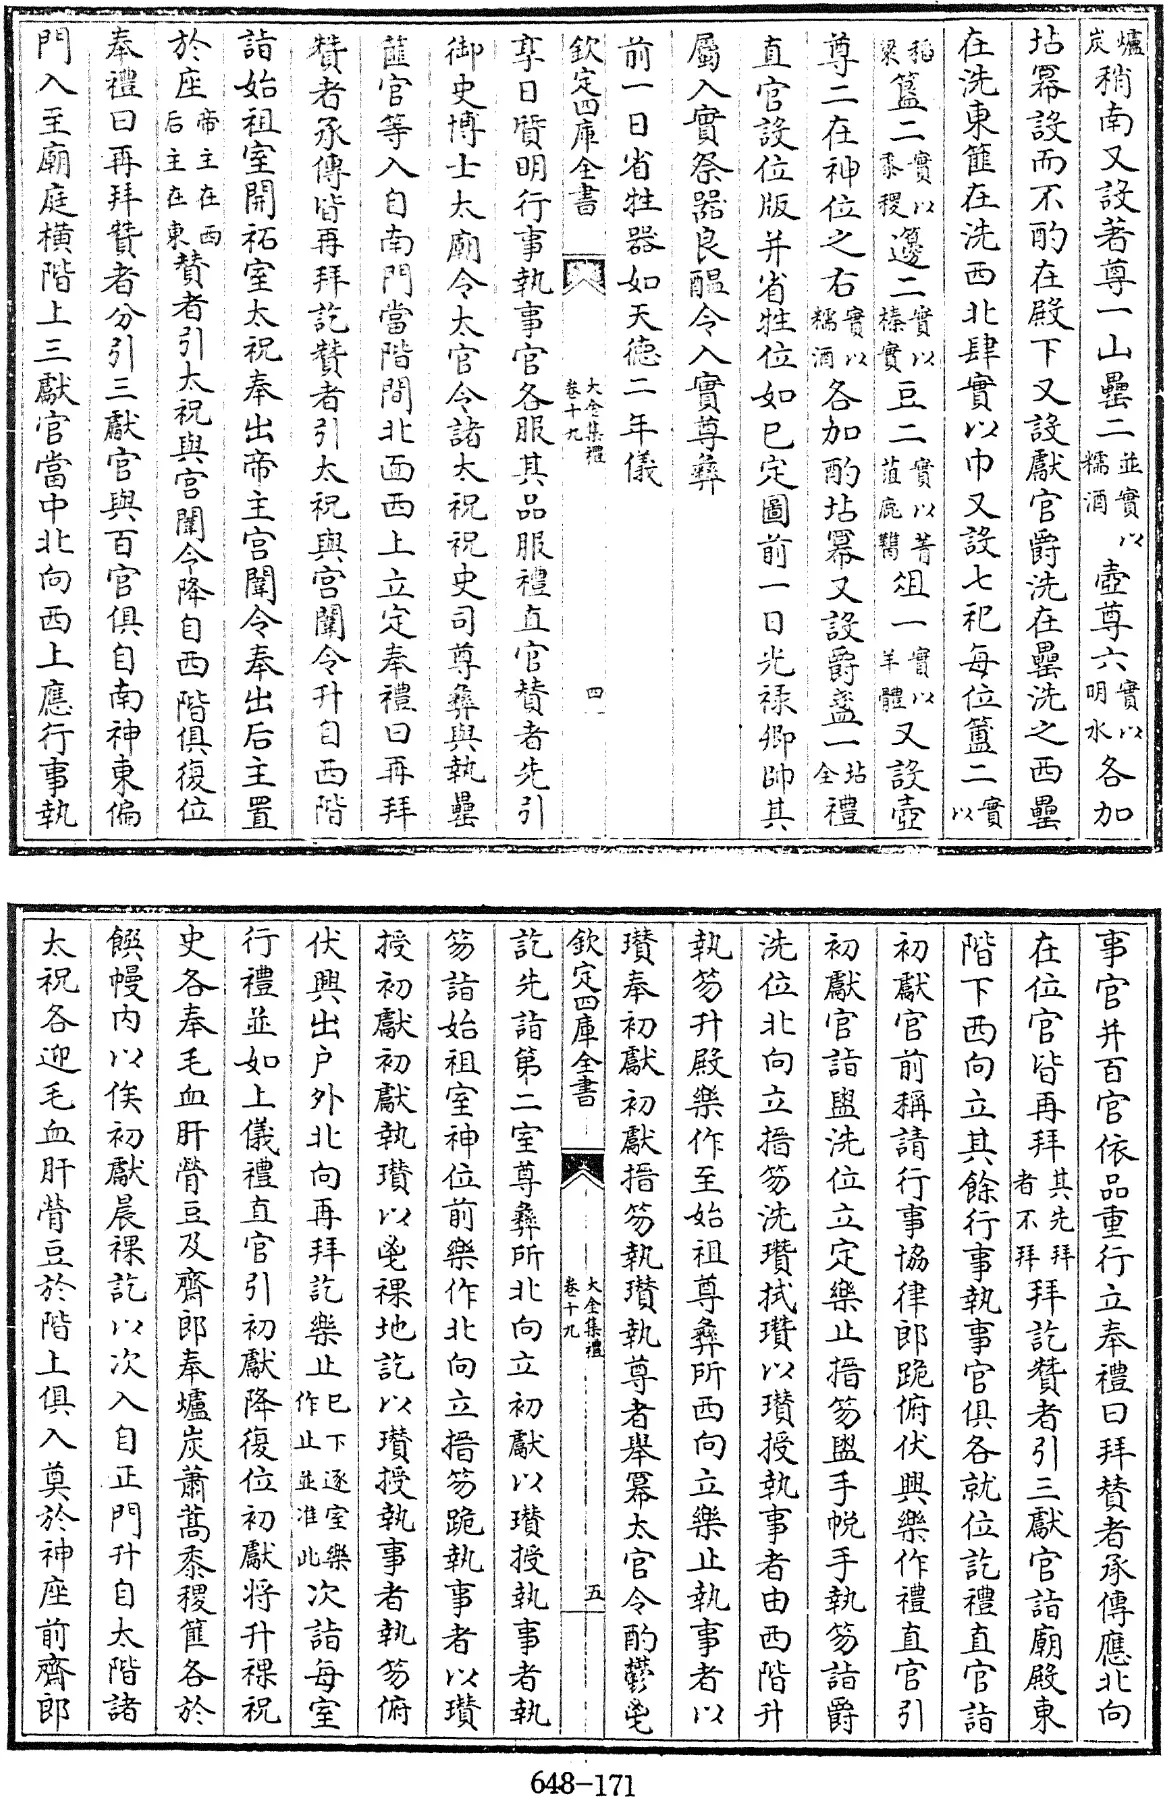 爐炭稍南又設著尊一山罍二並實以糯酒壺尊六實以明水各加
坫冪設而不酌在殿下又設獻官爵洗在罍洗之西罍
在洗東篚在洗西北肆實以巾又設七祀每位簠二實以
稻粱簋二實以黍稷籩二實以榛實豆二實以菁菹鹿臡俎一實以羊體又設壺
尊二在神位之右實以糯酒各加酌坫冪又設爵盞一坫全禮
直官設位版并省牲位如已定圖前一日光祿卿帥其
屬入實祭器良醞令入實尊彝
前一日省牲器如天德二年儀
欽定四庫全書 大金集禮 卷十九 四
享日質明行事執事官各服其品服禮直官贊者先引
御史博士太廟令太官令諸太祝祝史司尊彝與執罍
篚官等入自南門當階間北面西上立定奉禮曰再拜
贊者承傳皆再拜訖贊者引太祝與宮闈令升自西階
詣始祖室開祏室太祝奉出帝主宮闈令奉出后主置
於座帝主在西后主在東贊者引太祝與宮闈令降自西階俱復位
奉禮曰再拜贊者分引三獻官與百官俱自南神東偏
門入至廟庭橫階上三獻官當中北向西上應行事執
事官并百官依品重行立奉禮曰拜贊者承傳應北向
在位官皆再拜其先拜者不拜拜訖贊者引三獻官詣廟殿東
階下西向立其餘行事執事官俱各就位訖禮直官詣
初獻官前稱請行事協律郎跪俯伏興樂作禮直官引
初獻官詣盥洗位立定樂止搢笏盥手帨手執笏詣爵
洗位北向立搢笏洗瓚拭瓚以瓚授執事者由西階升
執笏升殿樂作至始祖尊彝所西向立樂止執事者以
瓚奉初獻初獻搢笏執瓚執尊者舉冪太官令酌鬱鬯
欽定四庫全書 大金集禮 卷十九 五
訖先詣第二室尊彝所北向立初獻以瓚授執事者執
笏詣始祖室神位前樂作北向立搢笏跪執事者以瓚
授初獻初獻執瓚以鬯祼地訖以瓚授執事者執笏俯
伏興出户外北向再拜訖樂止已下逐室樂作止並准此次詣每室
行禮並如上儀禮直官引初獻降復位初獻將升祼祝
史各奉毛血肝膋豆及齋郎奉爐炭蕭蒿黍稷篚各於
饌幔内以俟初獻晨祼訖以次入自正門升自太階諸
太祝各迎毛血肝膋豆於階上俱入奠於神座前齋郎
648-171